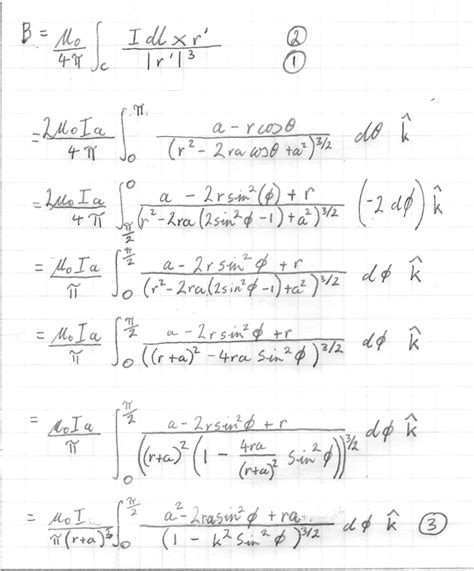 B = μ₀/4π ∫_C I dl × r' / |r'|³ ②
①
= 2μ₀Ia/4π ∫₀^π (a - r cosθ) / (r² - 2ra cosθ + a²)^{3/2} dθ k̂
= 2μ₀Ia/4π ∫_{π/2}^0 (a - 2r sin²(φ) + r) / (r² - 2ra(2sin²φ - 1) + a²)^{3/2} (-2 dφ) k̂
= μ₀Ia/π ∫₀^{π/2} (a - 2r sin²φ + r) / (r² - 2ra(2sin²φ - 1) + a²)^{3/2} dφ k̂
= μ₀Ia/π ∫₀^{π/2} (a - 2r sin²φ + r) / ((r+a)² - 4ra sin²φ)^{3/2} dφ k̂
= μ₀Ia/π ∫₀^{π/2} (a - 2r sin²φ + r) / ((r+a)² (1 - 4ra/(r+a)² sin²φ))^{3/2} dφ k̂
= μ₀I/π(r+a)³ ∫₀^{π/2} (a² - 2ra sin²φ + ra) / (1 - k² sin²φ)^{3/2} dφ k̂ ③